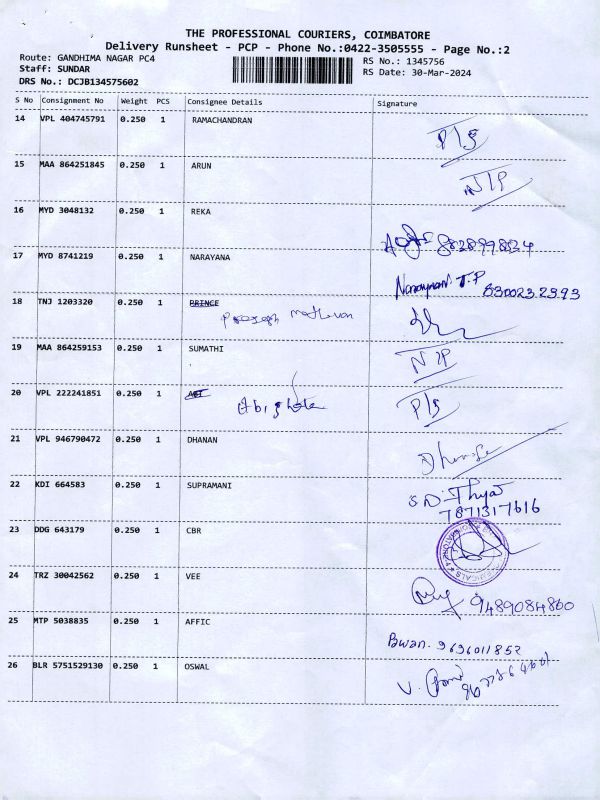 THE PROFESSIONAL COURIERS, COIMBATORE
Delivery Runsheet - PCP - Phone No.:0422-3505555 - Page No.:2
Route: GANDHIMA NAGAR PC4
RS No.: 1345756
Staff: SUNDAR
RS Date: 30-Mar-2024
DRS No.: DCJB134575602
S No Consignment No Weight PCS Consignee Details Signature
14 VPL 404745791 0.250 1 RAMACHANDRAN P/S
15 MAA 864251845 0.250 1 ARUN N/P
16 MYD 3048132 0.250 1 REKA
17 MYD 8741219 0.250 1 NARAYANA Narayanan T.P
18 TNJ 1203320 0.250 1 PRINCE
19 MAA 864259153 0.250 1 SUMATHI N/P
20 VPL 222241851 0.250 1 P/S
21 VPL 946790472 0.250 1 DHANAN
22 KDI 664583 0.250 1 SUPRAMANI S.D.
7871317616
23 DDG 643179 0.250 1 CBR
24 TRZ 30042562 0.250 1 VEE 9489084860
25 MTP 5038835 0.250 1 AFFIC Bwan. 9696011852
26 BLR 5751529130 0.250 1 OSWAL V.